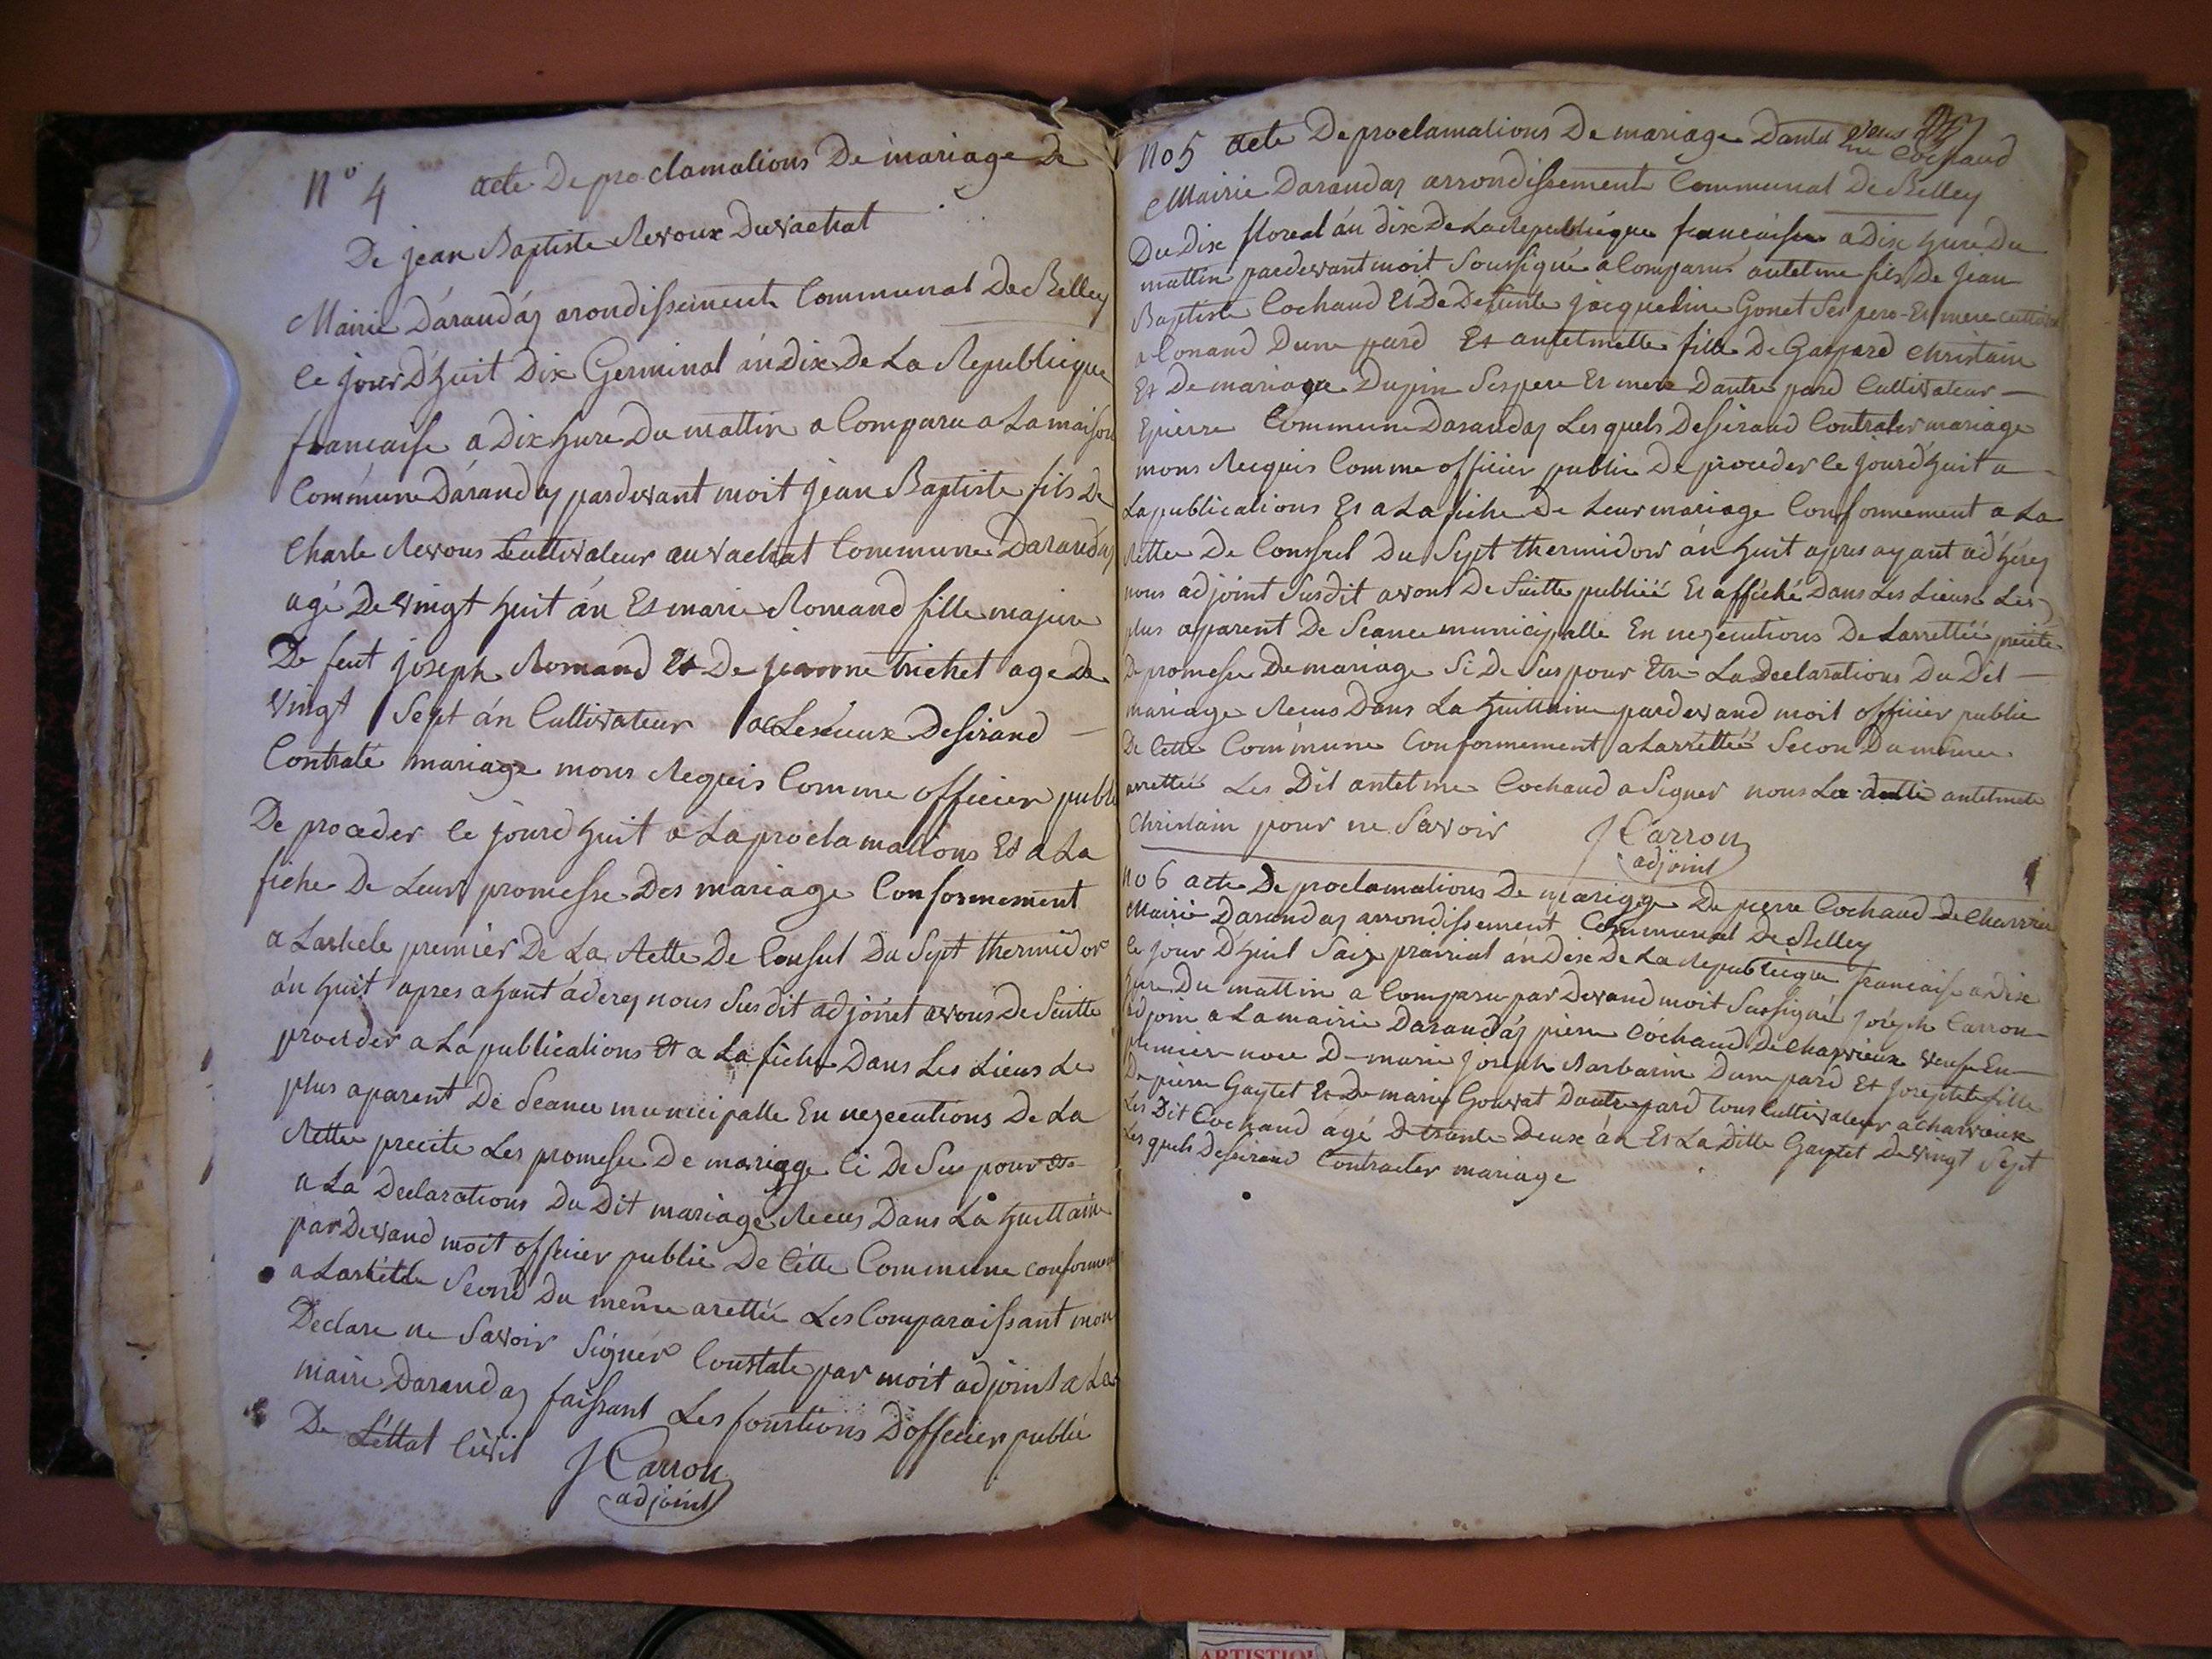 N° 4 acte De proclamations De mariage De
De jean Baptiste Revoux Duvachat
Mairie Dárandás arondissement Communal De Belley
Ce jour D'huit Dix Germinal án Dix De La Republicque
francaise a Dix hure Du mattin a Comparu a La maison
Commune Dárandas pardevant moit jean Baptiste fils De
Charle Revous Cultivateur au vachat Commune Darandás
agé De vingt huit án Et marie Romand fille majure
De feut joseph Romand Et De jeanne trichet age De
Vingt Sept án Cultivateur Desirand
Contraté mariage mons Requis Comme officier public
De proceder ce jourd huit a La proclamations Et a La
fiche De Leurs promesse Des mariage Conformement
a Lartiele premier De La Rette De Consul Du Sept thermidor
án huit apres ahant áderez nous Sus dit adjoint avons De Suitte
proceder a La publications Et a La fiche Dans Les Lieus Le
plus aparent De Seance municipalle En nezecutions De La
Rettee precite Les promesse De mariage Ci De Sus pour Etre
a La Declarations Du Dit mariage Recus Dans La huittaine
pardevand moit officier public De Cette Commune conformement
a Lartiele Second Du même arettée Les Comparaissant mon
Declare ne Savoir Signér Constate par moit adjoint a La
mairie Darandas faissant Les fonstions D'officier public
De L'éttat Civil J Carron
adjoint
No 5 acte De proclamations De mariage Cochaud
Mairie Darandas arrondissement Communal De Belley
Du Dix floreal án dix De La Republicque francaisse a Dix hure Du
mattin pardevant moit Soussigné a Comparus antelme fils De Jean
Baptiste Cochaud Et De Defunte jacqueline Gonet Ses pere Et mere
a Conand Dune pard Et antelmette fille De Gaspard Christain
Et De mariage Dupin Ses pere Et mere Dautre pard Cultivateur
Epierre Commune Darandas Les quels Dessiraud Contrater mariage
mons Requis Comme officier public De proceder ce jourd'huit a
La publications Et a La fiche De Leur mariage Conformement a La
Rettee De Conssul Du Sept thermidor án huit apres ayant adhérez
nous adjoint Susdit avons De Suitte publiéé Et affiché Dans Les Lieux Les
plus aparent De Seance municipalle En nezecutions De Larrettéé precite
De promesse De mariage Si De Sus pour Etre La Declarations Du Dit
mariage Recus Dans La huittaine pardevand moit officier public
De Cette Commune Conformement a Larrettéé Secon Du même
arrettée Les Dit antelme Cochaud a Signer nous La ditte antelmete
Christain pour ne Savoir J Carron
adjoint
No 6 acte De proclamations De mariage De pierre Cochaud de Charvieux
Mairie Darandas arrondissement Communal De Belley
Ce jour D'huit Saiz prairial án Dix De La Republicque francaise a Dix
hure Du mattin a Comparu par Devand moit Sussigné joseph Carron
adjoin a La mairie Darandás pierre Cochaud De Charvieux veuf En
premier noce De marie joseph Barbarin Dune pard Et josephte fille
De pierre Gaytet Et De marie Gouvat Dautre pard tous Cultivateur a Charvieux
Les Dit Cochaud ágé De trante Deux án Et La Ditte Gaytet De vingt Sept
Les quels Dessiraud Contracter mariage
ARTISTIQ